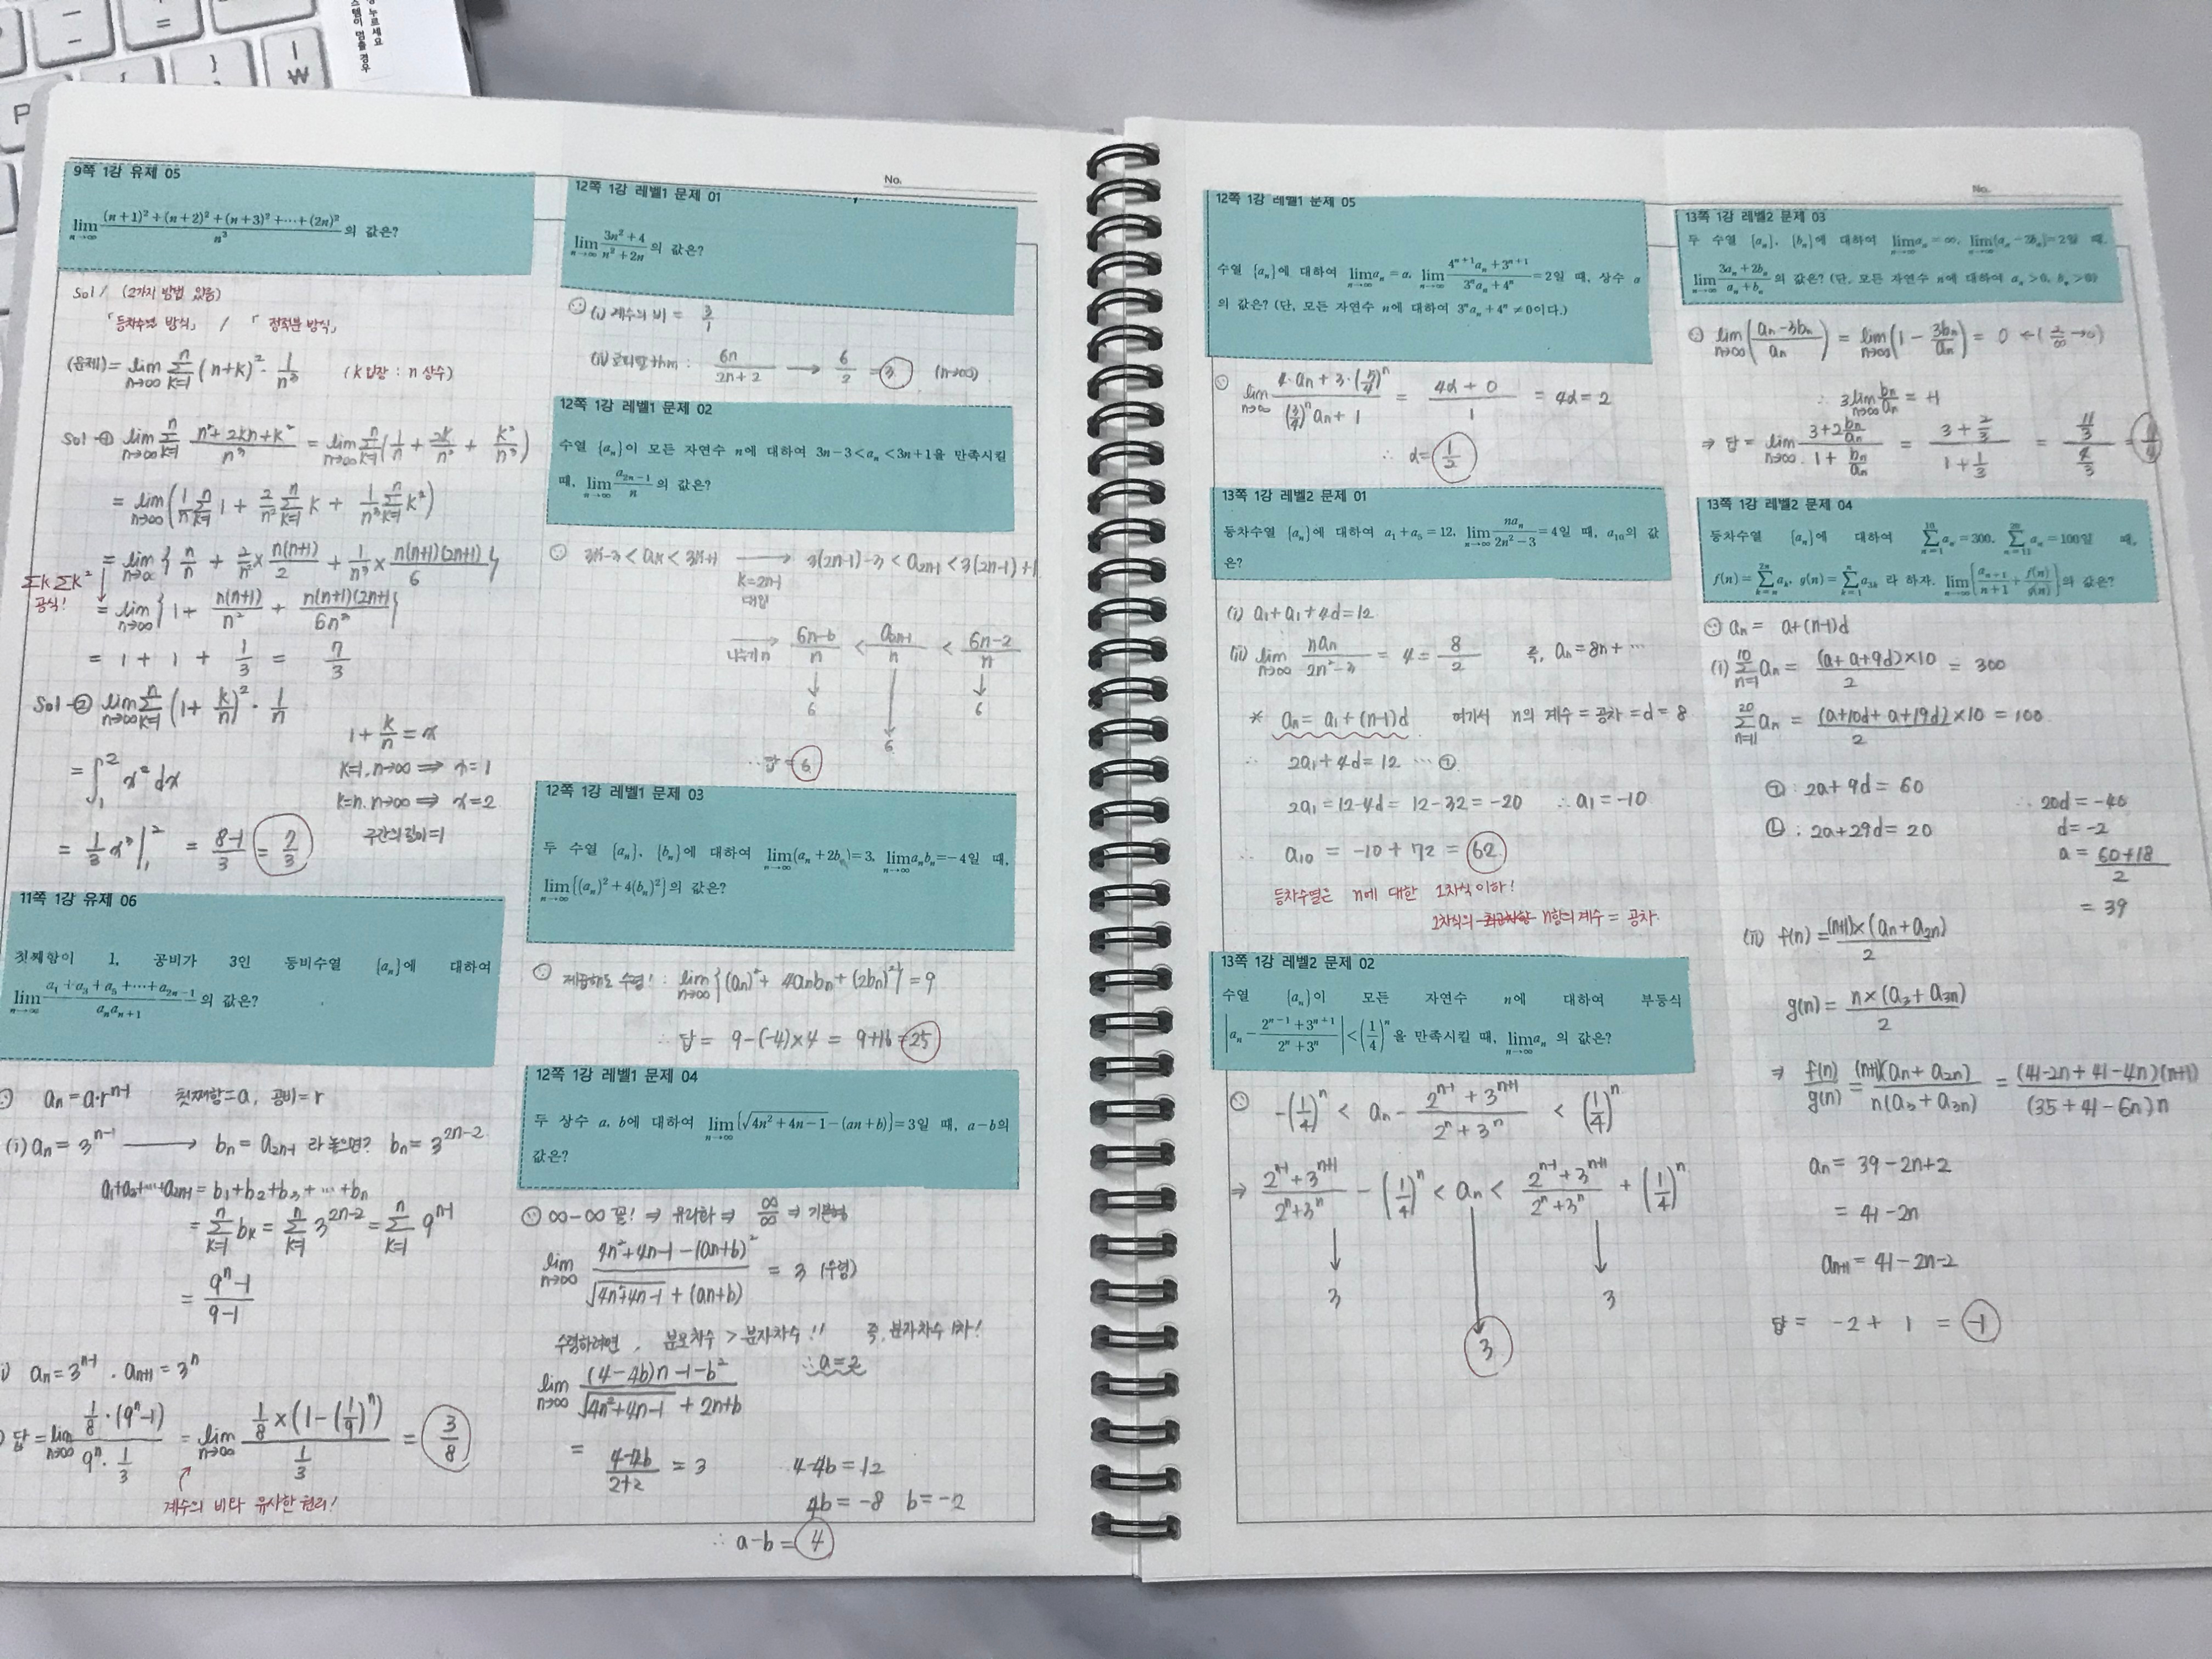 9쪽 1강 유제 05
lim n→∞ (n+1)²+(n+2)²+(n+3)²+⋯+(2n)² / n³ 의 값은?
sol/ (2가지 방법 있음)
「등차수열 방식」 / 「정적분 방식」
(문제) = lim n→∞ Σ k=1 n (n+k)² · 1/n³ (k입장 : n 상수)
sol-① lim n→∞ Σ k=1 n n²+2kn+k² / n³ = lim n→∞ Σ k=1 n (1/n + 2k/n² + k²/n³)
= lim n→∞ (1/n Σ k=1 n 1 + 2/n² Σ k=1 n k + 1/n³ Σ k=1 n k²)
= lim n→∞ { n/n + 2/n² × n(n+1)/2 + 1/n³ × n(n+1)(2n+1)/6 }
Σk Σk² 공식!
= lim n→∞ { 1 + n(n+1)/n² + n(n+1)(2n+1)/6n³ }
= 1 + 1 + 1/3 = 7/3
sol-② lim n→∞ Σ k=1 n (1+k/n)² · 1/n
1+k/n = x
= ∫₁² x² dx
k=1, n→∞ ⇒ x=1
k=n, n→∞ ⇒ x=2
구간의 길이=1
= 1/3 x³ |₁² = 8-1/3 = 7/3
11쪽 1강 유제 06
첫째항이 1, 공비가 3인 등비수열 {aₙ}에 대하여
lim n→∞ a₁+a₃+a₅+⋯+a₂ₙ₋₁ / aₙaₙ₊₁ 의 값은?
aₙ = a·rⁿ⁻¹ 첫째항=a, 공비=r
(i) aₙ = 3ⁿ⁻¹ → bₙ = a₂ₙ₋₁ 라 놓으면? bₙ = 3²ⁿ⁻²
a₁+a₃+⋯+a₂ₙ₋₁ = b₁+b₂+b₃+⋯+bₙ
= Σ k=1 n bₖ = Σ k=1 n 3²ⁿ⁻² = Σ k=1 n 9ⁿ⁻¹
= 9ⁿ-1 / 9-1
aₙ = 3ⁿ⁻¹, aₙ₊₁ = 3ⁿ
답 = lim n→∞ 1/8·(9ⁿ-1) / 9ⁿ·1/3 = lim n→∞ 1/8×(1-(1/9)ⁿ) / 1/3 = 3/8
계수의 비와 유사한 원리!
No.
12쪽 1강 레벨1 문제 01
lim n→∞ 3n²+4 / n²+2n 의 값은?
(i) 계수의 비 = 3/1
(ii) 로피탈 thm : 6n / 2n+2 → 6/2 = 3 (n→∞)
12쪽 1강 레벨1 문제 02
수열 {aₙ}이 모든 자연수 n에 대하여 3n-3<aₙ<3n+1을 만족시킬
때, lim n→∞ a₂ₙ₋₁ / n 의 값은?
3k-3 < aₖ < 3k+1 → 3(2n-1)-3 < a₂ₙ₋₁ < 3(2n-1)+1
k=2n-1
대입
나누기 n → 6n-6 / n < a₂ₙ₋₁ / n < 6n-2 / n
6 6
6
∴ 답 = 6
12쪽 1강 레벨1 문제 03
두 수열 {aₙ}, {bₙ}에 대하여 lim n→∞ (aₙ+2bₙ)=3, lim n→∞ aₙbₙ=-4일 때,
lim n→∞ {(aₙ)²+4(bₙ)²}의 값은?
제곱해도 수렴! : lim n→∞ {(aₙ)² + 4aₙbₙ + (2bₙ)²} = 9
∴ 답 = 9-(-4)×4 = 9+16 = 25
12쪽 1강 레벨1 문제 04
두 상수 a, b에 대하여 lim n→∞ {√4n²+4n-1-(an+b)}=3일 때, a-b의
값은?
∞-∞ 꼴! ⇒ 유리화 ⇒ ∞/∞ ⇒ 기본형
lim n→∞ 4n²+4n-1-(an+b)² / √4n²+4n-1 + (an+b) = 3 (수렴)
수렴하려면, 분모차수 > 분자차수!! 즉, 분자차수 1차!
∴ a=2
lim n→∞ (4-4b)n-1-b² / √4n²+4n-1 + 2n+b
= 4-4b / 2+2 = 3 4-4b=12
4b=-8 b=-2
∴ a-b = 4
12쪽 1강 레벨1 문제 05
수열 {aₙ}에 대하여 lim n→∞ aₙ=α, lim n→∞ 4ⁿ⁺¹aₙ+3ⁿ⁺¹ / 3ⁿaₙ+4ⁿ =2일 때, 상수 α
의 값은? (단, 모든 자연수 n에 대하여 3ⁿaₙ+4ⁿ≠0이다.)
lim n→∞ 4·aₙ+3·(3/4)ⁿ / (3/4)ⁿaₙ+1 = 4α+0 / 1 = 4α=2
∴ α = 1/2
13쪽 1강 레벨2 문제 01
등차수열 {aₙ}에 대하여 a₁+a₅=12, lim n→∞ naₙ / 2n²-3 =4일 때, a₁₀의 값
은?
(i) a₁+a₁+4d=12
(ii) lim n→∞ naₙ / 2n²-3 = 4 = 8/2 즉, aₙ=8n+⋯
* aₙ = a₁+(n-1)d 여기서 n의 계수 = 공차 = d = 8
∴ 2a₁+4d=12 ⋯ ㉠
2a₁=12-4d=12-32=-20 ∴ a₁=-10
∴ a₁₀ = -10+72 = 62
등차수열은 n에 대한 1차식 이하!
1차식의 최고차항 n항의 계수 = 공차.
13쪽 1강 레벨2 문제 02
수열 {aₙ}이 모든 자연수 n에 대하여 부등식
|aₙ - 2ⁿ⁻¹+3ⁿ⁺¹ / 2ⁿ+3ⁿ| < (1/4)ⁿ을 만족시킬 때, lim n→∞ aₙ 의 값은?
-(1/4)ⁿ < aₙ - 2ⁿ⁻¹+3ⁿ⁺¹ / 2ⁿ+3ⁿ < (1/4)ⁿ
⇒ 2ⁿ⁻¹+3ⁿ⁺¹ / 2ⁿ+3ⁿ - (1/4)ⁿ < aₙ < 2ⁿ⁻¹+3ⁿ⁺¹ / 2ⁿ+3ⁿ + (1/4)ⁿ
3 3
3
No.
13쪽 1강 레벨2 문제 03
두 수열 {aₙ}, {bₙ}에 대하여 lim n→∞ aₙ=∞, lim n→∞ (aₙ-3bₙ)=2일 때,
lim n→∞ 3aₙ+2bₙ / aₙ+bₙ 의 값은? (단, 모든 자연수 n에 대하여 aₙ>0, bₙ>0)
lim n→∞ (aₙ-3bₙ / aₙ) = lim n→∞ (1 - 3bₙ/aₙ) = 0 ← (2/∞→0)
∴ 3 lim n→∞ bₙ/aₙ = +1
⇒ 답 = lim n→∞ 3+2bₙ/aₙ / 1+bₙ/aₙ = 3+2/3 / 1+1/3 = 11/3 / 4/3 = 11/4
13쪽 1강 레벨2 문제 04
등차수열 {aₙ}에 대하여 Σ n=1 10 aₙ=300, Σ n=11 20 aₙ=100일 때,
f(n)=Σ k=n 2n aₖ, g(n)=Σ k=1 n a₃ₖ 라 하자. lim n→∞ {aₙ₊₁ / n+1 + f(n)/g(n)}의 값은?
aₙ = a+(n-1)d
(i) Σ n=1 10 aₙ = (a+a+9d)×10 / 2 = 300
Σ n=11 20 aₙ = (a+10d+a+19d)×10 / 2 = 100
㉠ : 2a+9d=60
㉡ : 2a+29d=20
∴ 20d=-40
d=-2
a = 60+18 / 2
= 39
(ii) f(n) = (n+1)×(aₙ+a₂ₙ) / 2
g(n) = n×(a₃+a₃ₙ) / 2
⇒ f(n)/g(n) = (n+1)(aₙ+a₂ₙ) / n(a₃+a₃ₙ) = (41-2n+41-4n)(n+1) / (35+41-6n)n
aₙ = 39-2n+2
= 41-2n
aₙ₊₁ = 41-2n-2
답 = -2+1 = -1